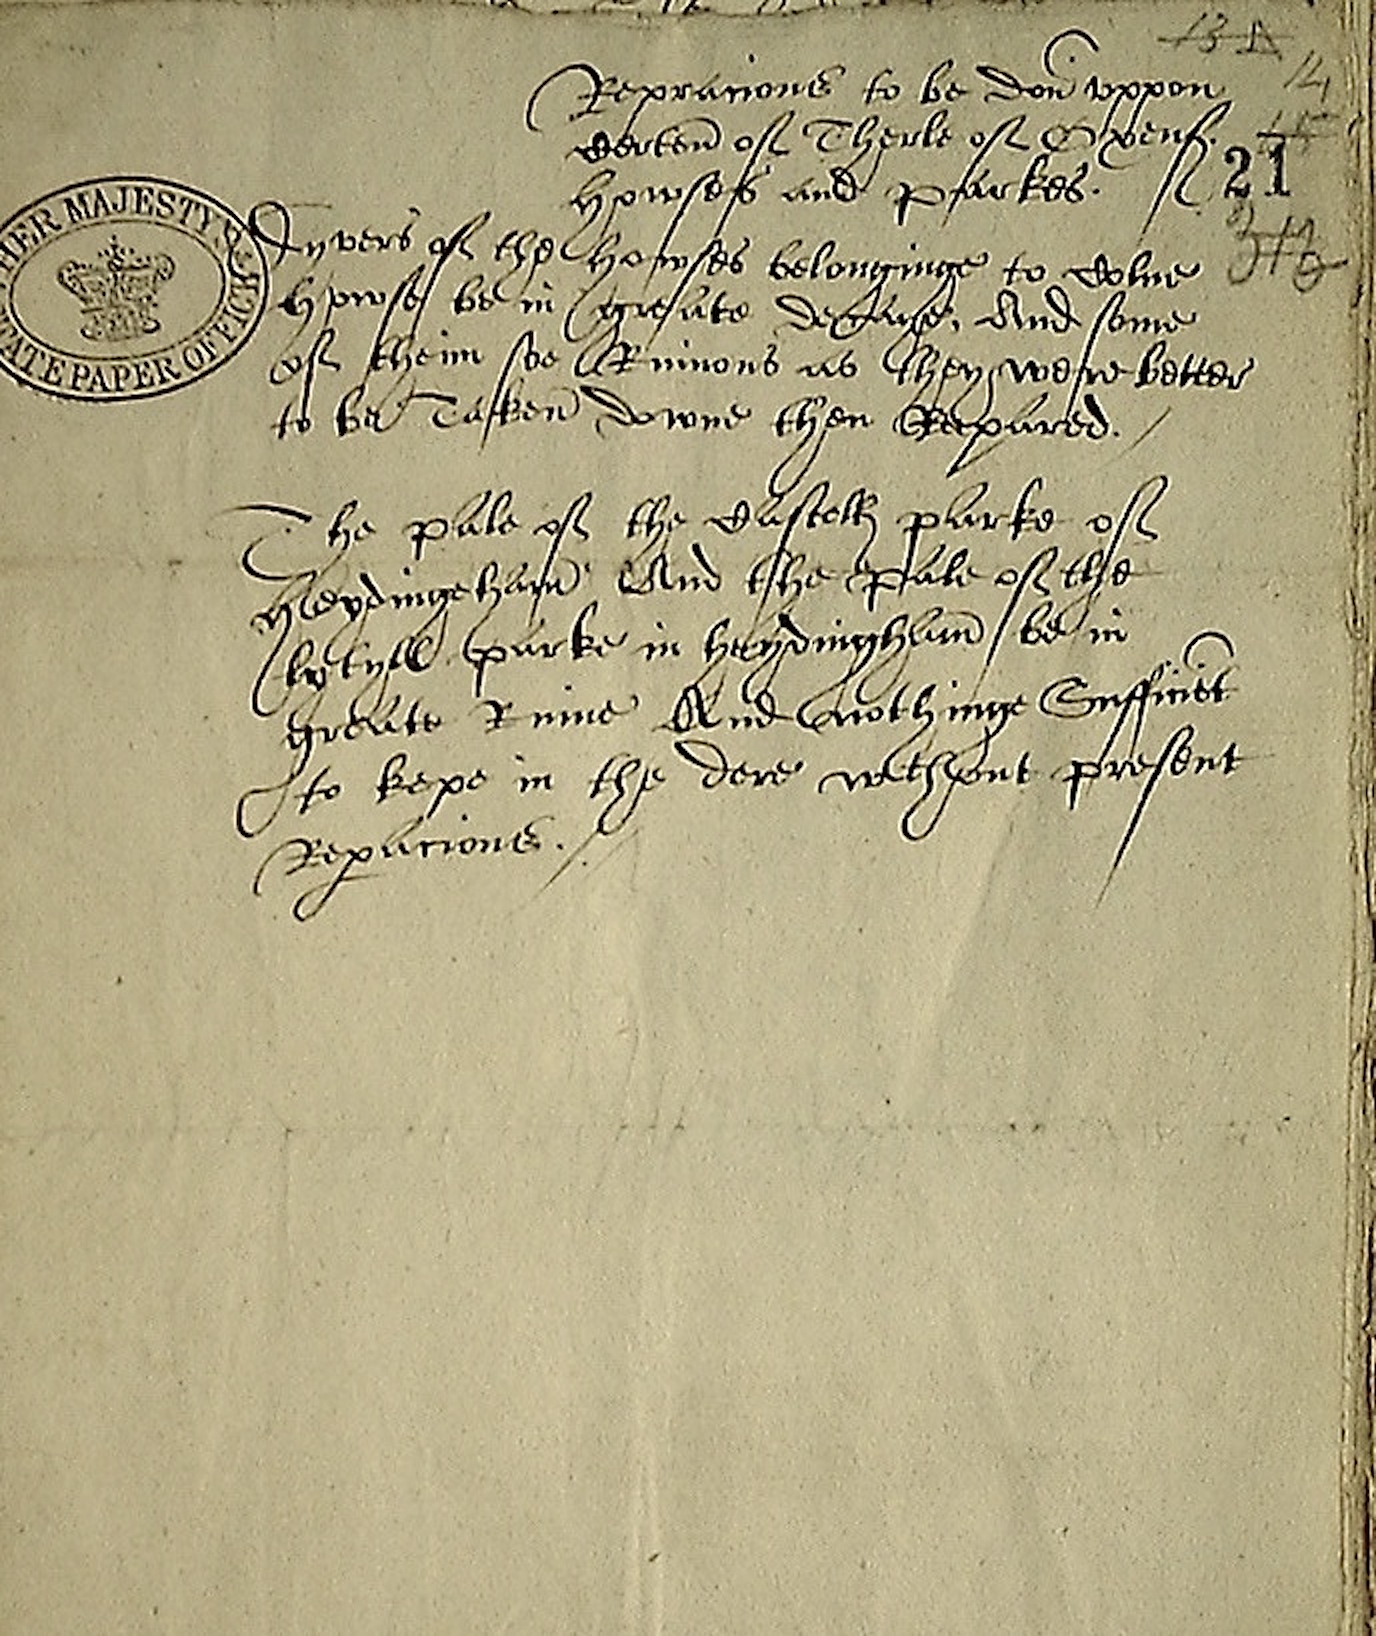 13 A
14
15
Repracions to be don uppon
certen of Therle of Oxenf.
howses and parkes.
21
Dyvers of the howses belonginge to Colne
howse be in greate decaye, And some
of theim soe Ruinous as they were better
to be Taken downe then Repared.
HER MAJESTY'S
STATE PAPER OFFICE
The pale of the Castell parke of
Heydingeham And the Pale of the
lytyll parke in heydingham be in
greate Ruine And nothinge Sufficiet
to kepe in the dere without present
Repacions.